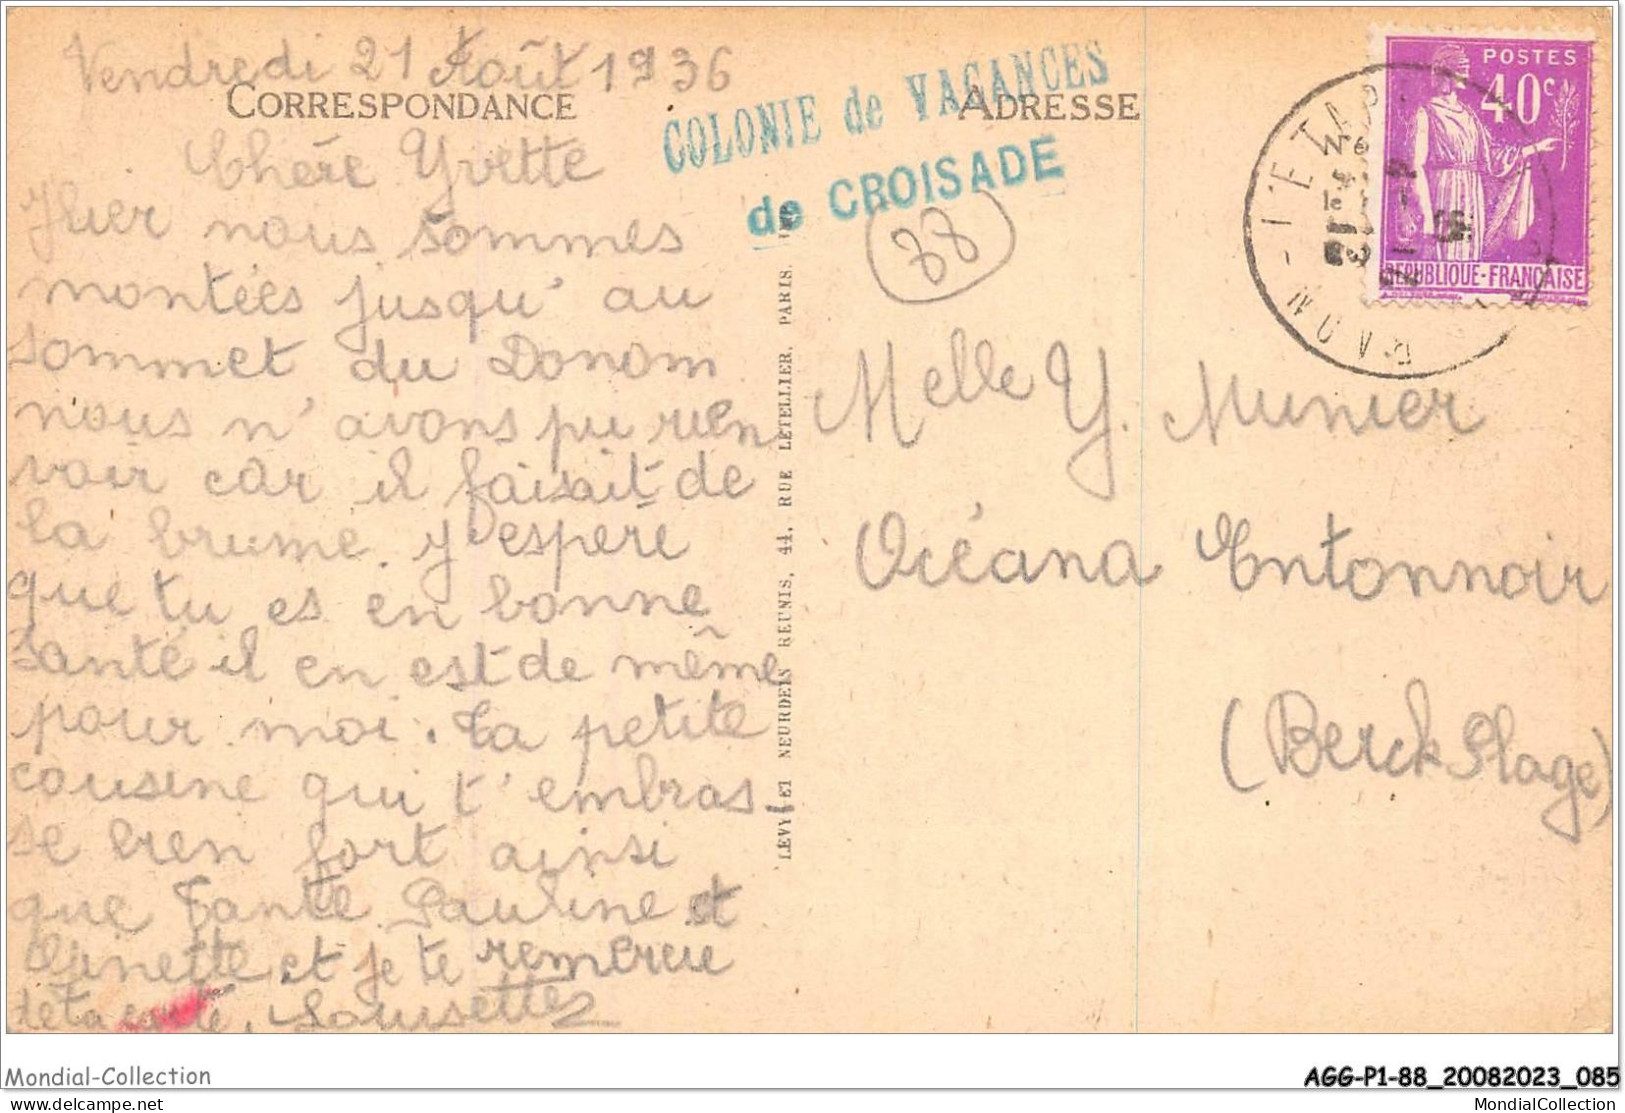 Vendredi 21 Août 1936
CORRESPONDANCE
COLONIE de VACANCES
de CROISADE
ADRESSE
88
POSTES
40c
RÉPUBLIQUE-FRANÇAISE
RAON-L'ETAP
Chère Yvette
Hier nous sommes
montées jusqu' au
sommet du Donom
nous n' avons pu rien
voir câr il faisait de
la brume. J'espère
que tu es en bonne
santé il en est de même
pour moi. Ta petite
cousine qui t' embras-
se bien fort ainsi
que Tante Pauline et
Ginette et je te remercie
de ta carte. Lousette
LEVY ET NEURDEIN REUNIS, 44, RUE LETELLIER, PARIS.
Melle Y. Munier
Océana Entonnoir
(Berck Plage)
Mondial-Collection
AGG-P1-88_20082023_085
mondialcollection
MondialCollection